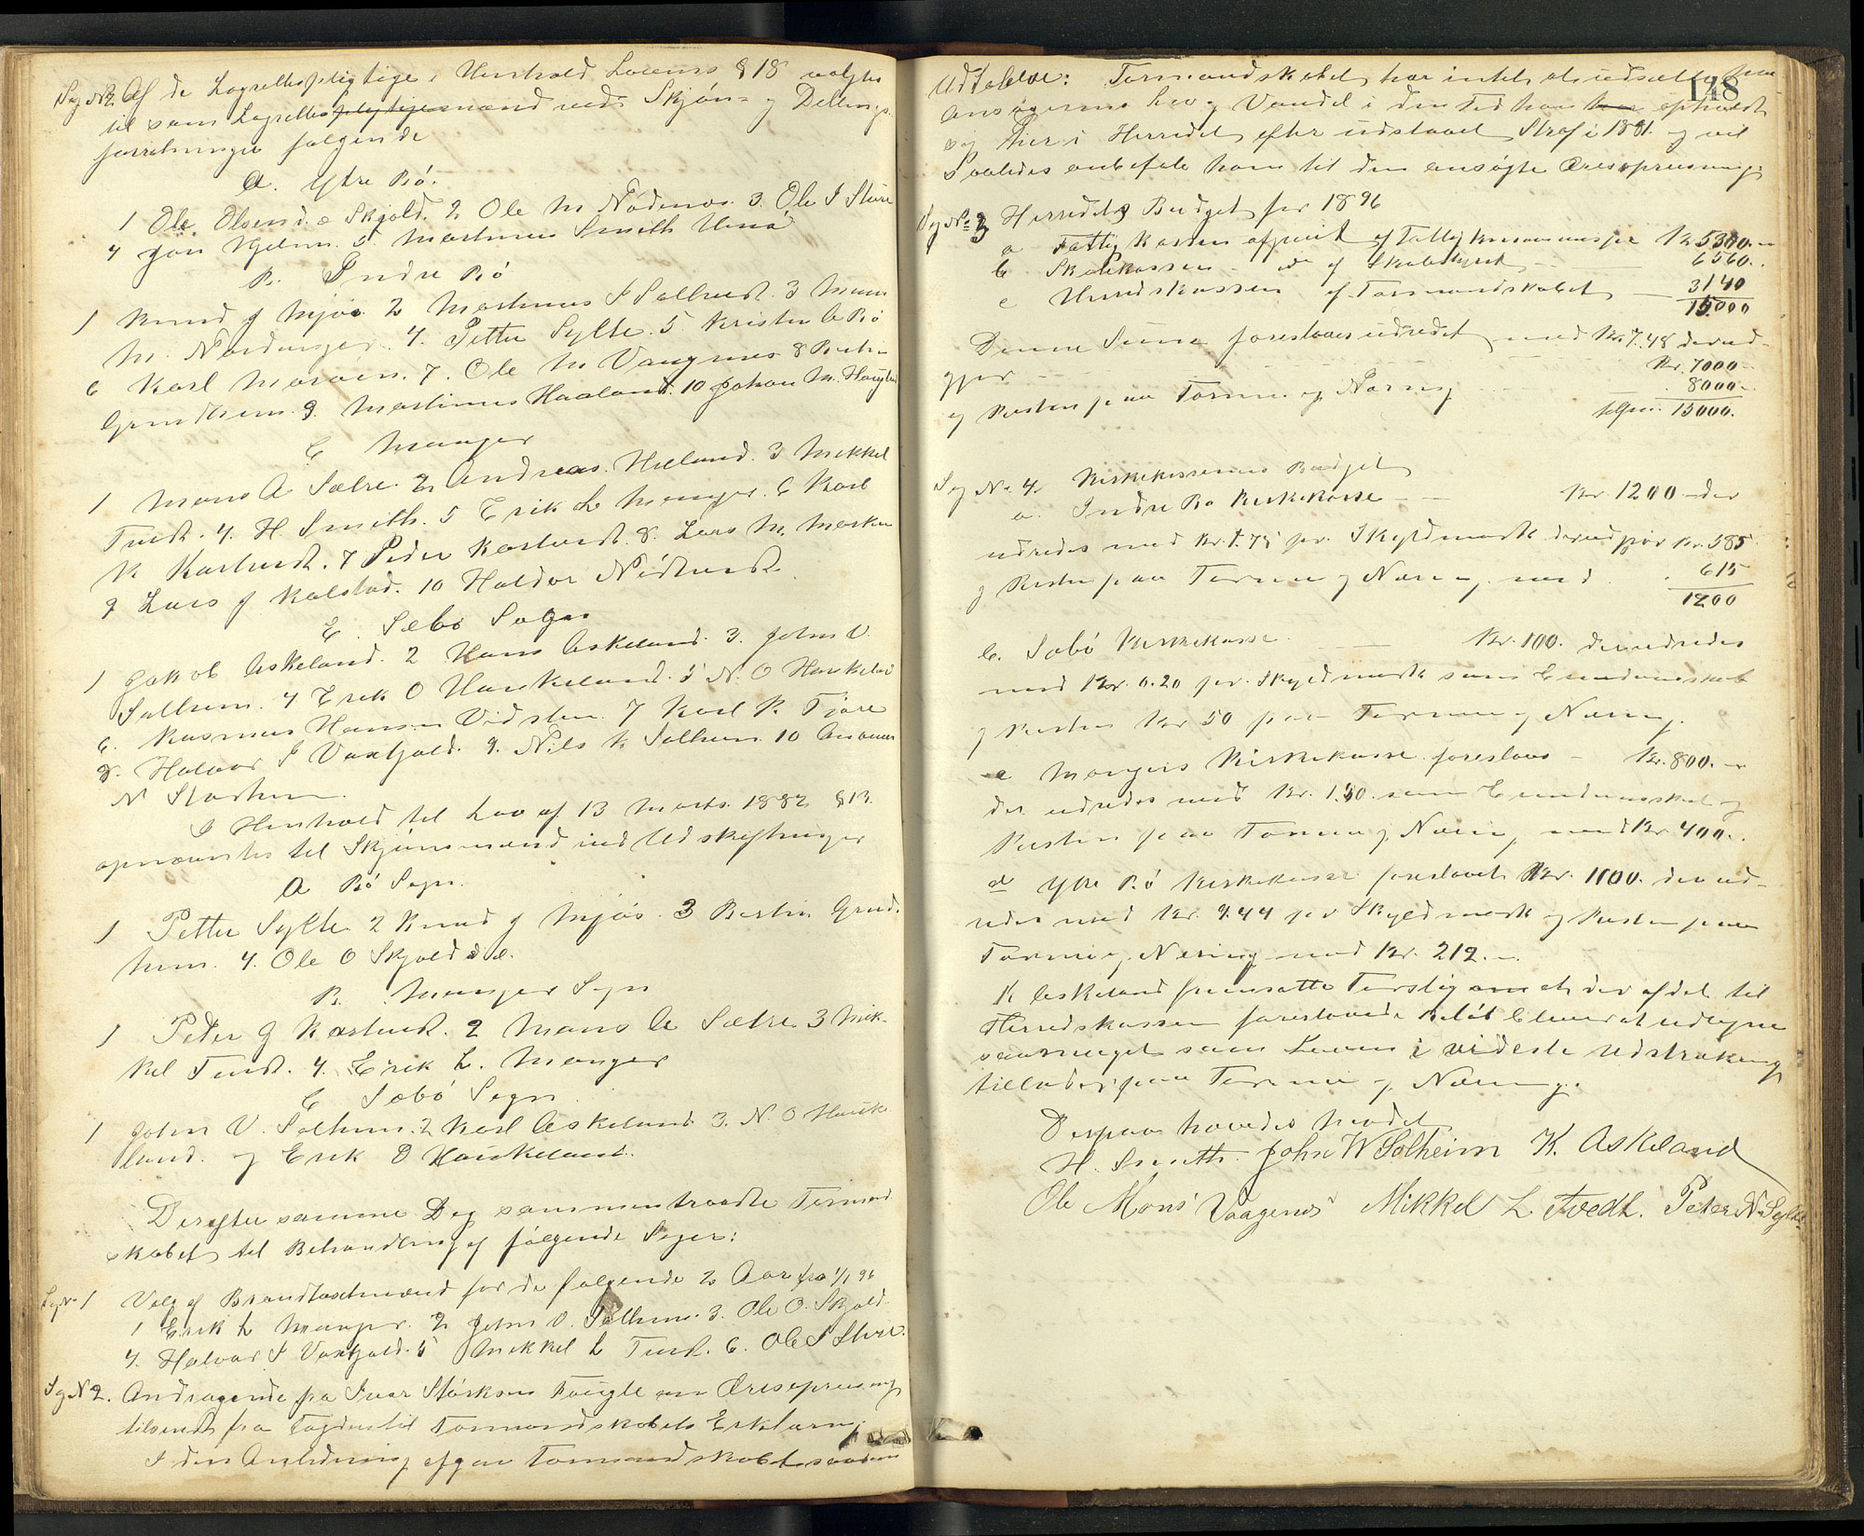 Sag No 2. Af de Lagrettespligtige i Henhold Lovens § 18 valgtes
til som Lagrettes mænd ved Skjøns- og Delings-
forretninger følgende
A. Ytre Bø.
1 Ole Olsen Skjold. 2 Ole M 3. Ole I Sture
4 5 Martinus Smith
B. Indre Bø
1 Knud J Mjøs 2 Martinus I Solheim. 3 Mons
M. 4. Petter Sylte. 5 Kristen Bø
6 Karl 7. Ole M Vaagenes 8 Bertin
Grindheim. 9. Martinus Haaland. 10 Johan M.
C Manger
1 Mons A Sætre 2 Andreas Helland. 3 Mikkel
Tvedt. 4. H. Smith. 5 Erik L Manger. 6 Karl
K Kartveit. 7 Peder Kartveit. 8. Lars M.
9 Lars J Kalstad. 10 Haldor
E. Sæbø Sogn
1 Jakob Askeland. 2 Hans Askeland. 3. John V.
Solheim. 4 Erik O Haukeland. 5 N. O Haukeland
6. Rasmus Hansen Vidsten. 7 Karl R.
8. Halvor I 9. Nils K Solheim 10
N
I Henhold til Lov af 13 Marts 1882 § 13.
opnævntes til Skjønsmænd ved Udskiftninger
A Bø Sogn.
1 Petter Sylte 2 Knud J Mjøs. 3 Bertin Grind-
heim. 4. Ole O Skjold
B. Manger Sogn
1 Peter J Kartveit. 2 Mons A Sætre 3 Mik-
kel Tvedt. 4. Erik L. Manger
C Sæbø Sogn
1 John V. Solheim. 2 Karl Askeland 3. N. O Hauke
land. og Erik O Haukeland.
Derefter samme Dag sammentraadte Formand
skabet til Behandling af følgende Sager:
Sag No 1 Valg af Brandtaxtmænd for de følgende 2 Aar fra 1/1 96
1 Erik L Manger. 2 John V. Solheim. 3. Ole O. Skjold
4. Halvor I 5 Mikkel L Tvedt. 6. Ole I Sture.
Sag N 2. Andragende fra Ivar Størksen om Æresopreisning
tilsendt fra Fogden til Formandskabets Erklæring.
I den Anledning afgav Formandskabet saadan
148
Udtalelse: Formandskabet har intet at udsætte paa
Ansøgerens Lev og Vandel i den Tid han har opholdt
sig her i Herredet efter udstaaet Straf i 1881. og vil
saaledes anbefale ham til den ansøgte Æresopreisning.
Sag No 3 Herredets Budget for 1896
a Fattigkassen afgivet af Fattigkommissionen Kr 5300.–
b Skolekassen – do af Skolestyret – 6560.–
c Herredskassen af Formandskabet – 3140
15000
Denne Sum foreslaaes udredet med Kr. 7.48 derud-
gjør – Kr. 7000 –
og Resten paa Formue og Næring 8000 –
tilsm. 15000.
Sag No. 4. Kirkekassernes Budget
a. Indre Bø Kirkekasse – – Kr. 1200 – der
udredes med Kr. 1.75 pr. Skyldmark derudgjør Kr. 585
og Resten paa Formue og Næring med 615
1200
b. Sæbø Kirkekasse – Kr. 100. der udredes
med Kr. 0.20 pr. Skyldmark som Eiendomsskat
og Resten Kr 50 paa Formue og Næring.
c Mangers Kirkekasse foreslaaes – Kr. 800. –
der udredes med Kr. 1.30 som Eiendomsskat og
Resten paa Formue og Næring med Kr 400.
d Ytre Bø Kirkekasse foreslaaet Kr. 1100. der ud-
redes med Kr. 9.44 pr Skyldmark og Resten paa
Formue og Næring med Kr. 212. –
K Askeland fremsatte Forslag om at der af det til
Herredskassen foreslaaede Beløb bliver at udligne
saameget som Loven i videste Udstrækning
tillader paa Formue og Næring.
Derpaa hævedes mødet
H. Smith. John W Solheim K. Askeland
Ole Mons Vaagenes Mikkel L Tvedt. Peter N. Sylte